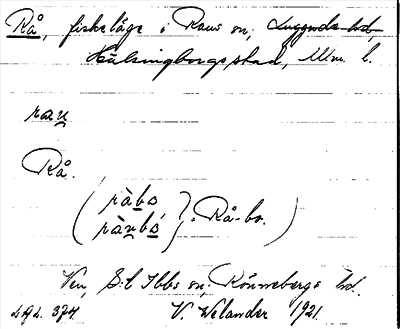 Rå, fiskeläge i Raus sn, Luggude hd,
Hälsingborgs stad, Mlm. l.
rau
Rå.
(ràbo
ràubo } : Rå-bo. )
Ven, S:t Ibbs sn, Rönnebergs hd.
L.A.L. 374 V. Welander 1921.